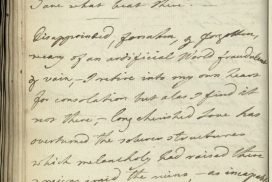 I are what beat there
Disappointed, forsaken, & forgotten,
weary of an artificial World fraudulent
& vain, – I retire into my own heart
for consolation but alas I find it
not there, – Long cherished Love has
overturned the solemn structures
which melancholy had raised there
amid the ruins – as incapable